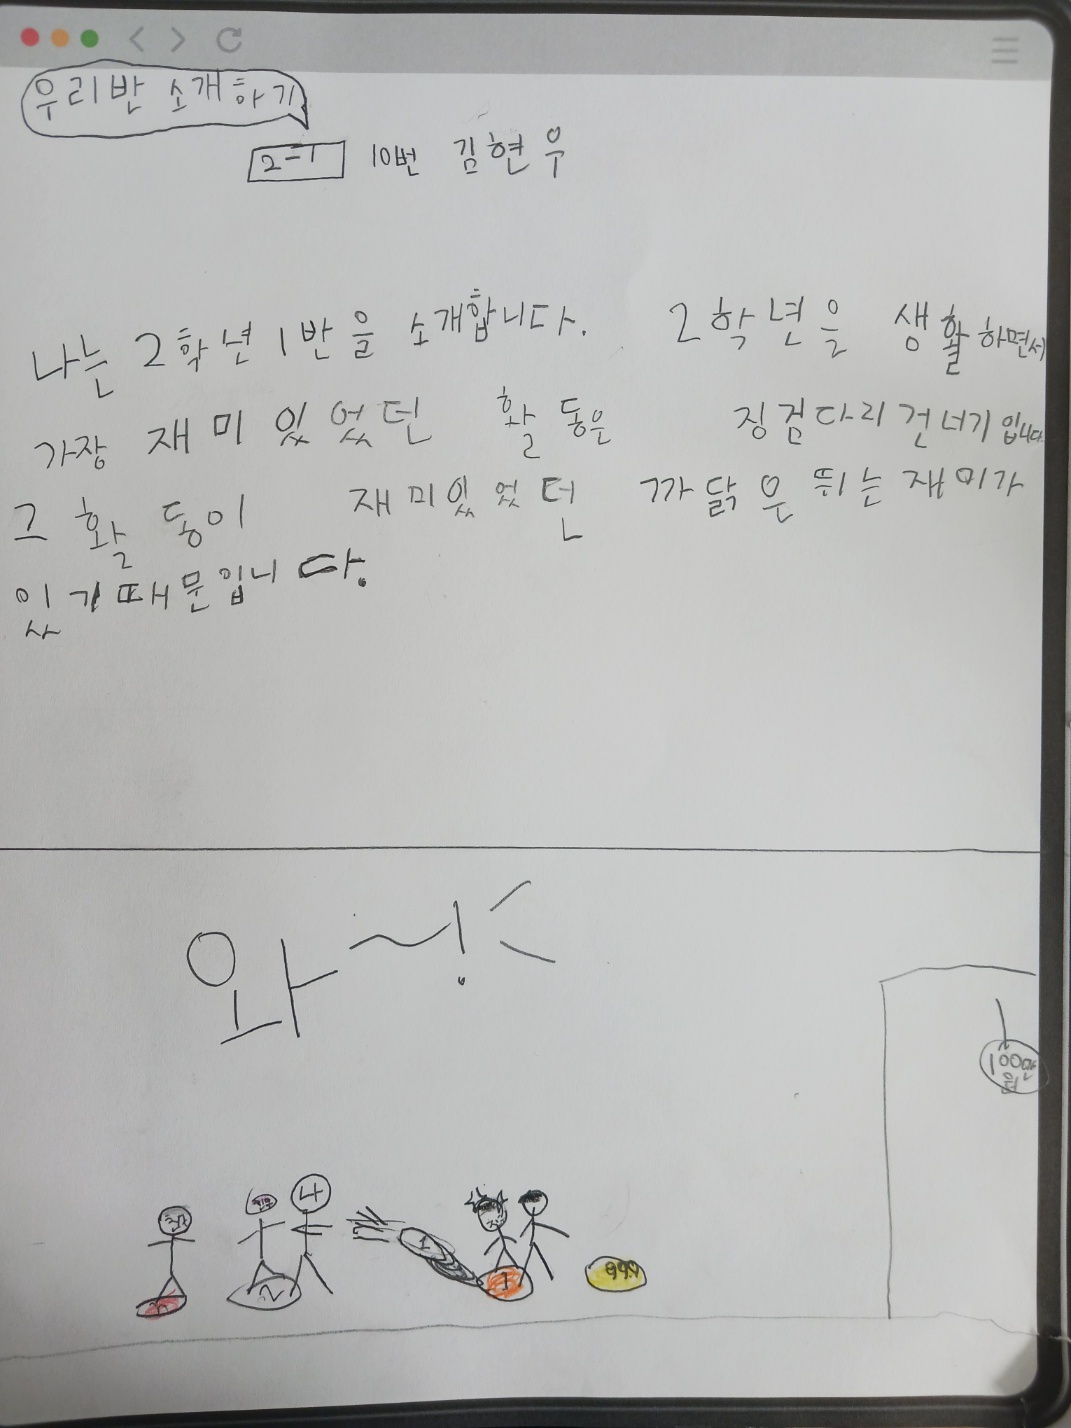 우리반 소개하기
2-1 10번 김현우
나는 2학년 1반을 소개합니다. 2학년을 생활하면서
가장 재미있었던 활동은 징검다리 건너기입니다
그 활동이 재미있었던 까닭은 뛰는 재미가
있기때문입니다.
와~!
100만
원
4
1
2
1
99.9